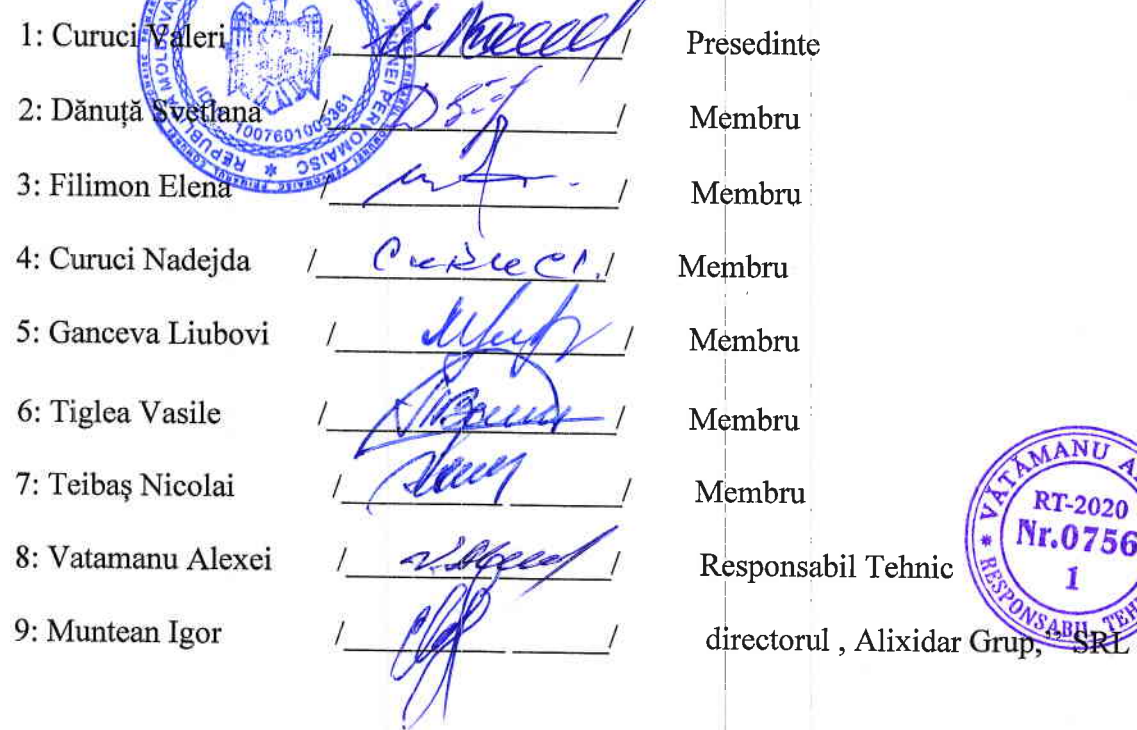 1: Curuci Valeri / / Presedinte
2: Dănuță Svetlana / / Membru
3: Filimon Elena / / Membru
4: Curuci Nadejda / / Membru
5: Ganceva Liubovi / / Membru
6: Tiglea Vasile / / Membru
7: Teibaş Nicolai / / Membru
8: Vatamanu Alexei / / Responsabil Tehnic
9: Muntean Igor / / directorul , Alixidar Grup,,, SRL
REPUBLICA MOLDOVA
1007601005361
PERVOMAISC
VĂTĂMANU
RT-2020
Nr.0756
1
RESPONSABIL TEH